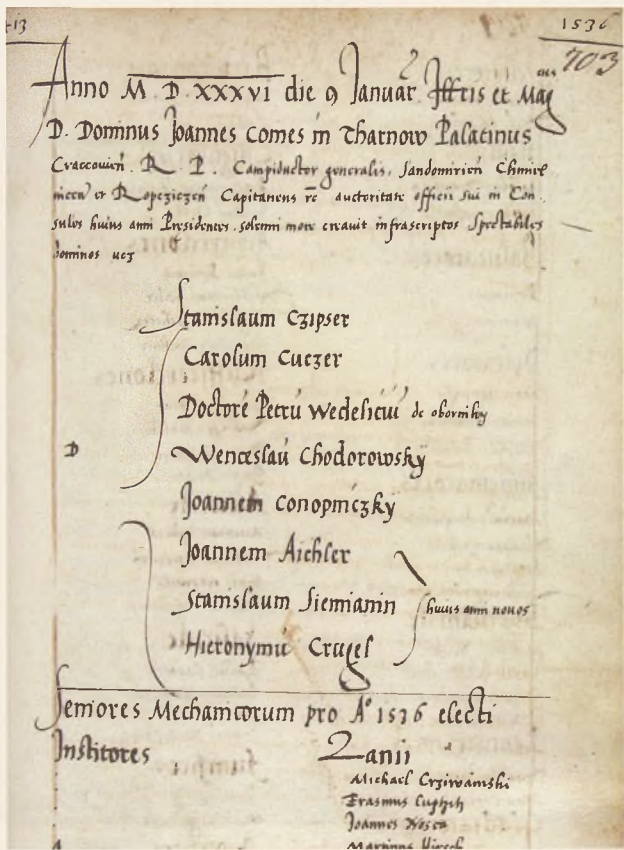 413
1536
703
Anno M D XXXVI die 9 Januar Illtris et Mag cus
D. Dominus Joannes Comes in Tharnow Palatinus
Craccouien̄. R. P. Campiductor generalis, Sandomirien̄ Chmiel
nicen̄ et Ropczicen̄ Capitaneus rc̄ auctoritate officii sui in Con
sules huius anni Presidentes solemni more creauit infrascriptos Spectabiles
dominos ucz
Stanislaum Czipser
Carolum Cuczer
Doctorē Petrū Wedeliciū de obornik
D
Wenceslaū Chodorowsky
Joannem Conopniczky
Joannem Aichler
Stanislaum Siemianin
huius anni nouos
Hieronymū Crugel
Seniores Mechanicorum pro A° 1536 electi
Institores
Lanii
Michael Crziwanski
Erasmus
Joannes
Martinus Hirsch